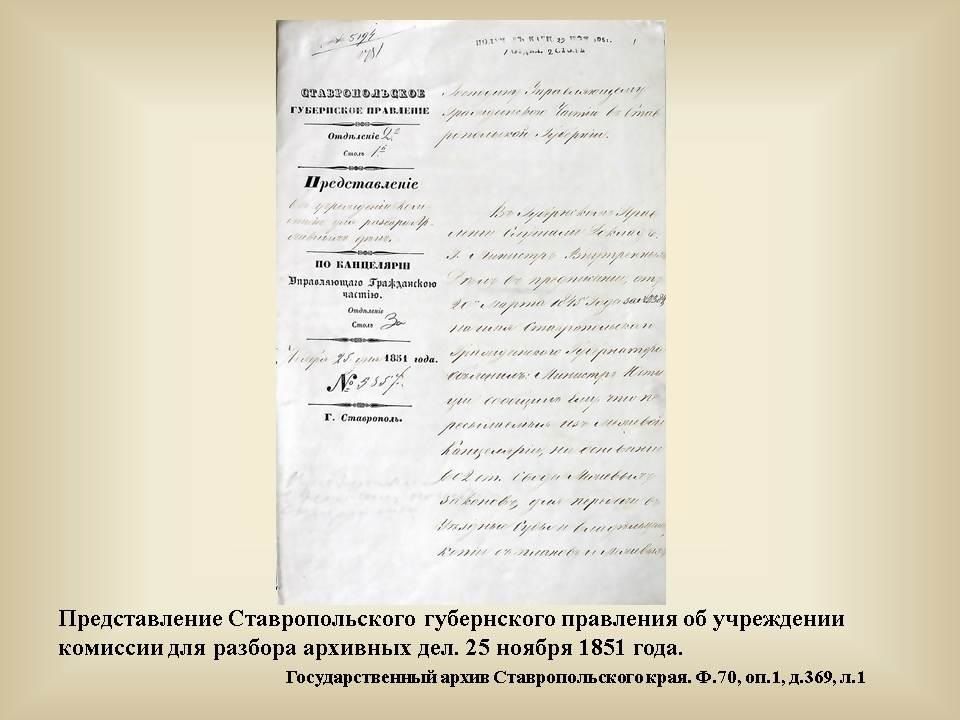 № 5194
1781
ПОЛУЧ. ВЪ КАНЦ. 29 НОЯ. 1851.
1 ОТДѢЛ. 2 СТОЛЪ
1
СТАВРОПОЛЬСКОЕ
ГУБЕРНСКОЕ ПРАВЛЕНІЕ
Отдѣленіе 2е
Столъ 1й
Представленіе
объ учрежденіи ком-
мисіи для разбора Ар-
хивныхъ дѣлъ.
ПО КАНЦЕЛЯРІИ
Управляющаго Гражданскою
частію.
Отдѣленіе
Столъ
25 дня 1851 года.
№ 3857.
Г. Ставрополь.
Господину Управляющему
Гражданскою Частію въ Став
ропольской Губерніи.
Въ Губернскомъ Прав
леніи Слушали Докладъ:
Г. Министръ Внутреннихъ
Дѣлъ въ предписаніи, отъ
Марта 1845 года за №
на имя Ставропольскаго
Гражданскаго Губернатора
Министръ Юсти
ціи сообщилъ ему, что пе
ресылаемыя изъ Межевой
Канцеляріи, на основаніи
ст. Свода Межевыхъ
Законовъ, для передачи въ
Уѣздные Суды и владѣльцамъ
копіи съ плановъ и Межевыхъ
Представление Ставропольского губернского правления об учреждении
комиссии для разбора архивных дел. 25 ноября 1851 года.
Государственный архив Ставропольского края. Ф.70, оп.1, д.369, л.1